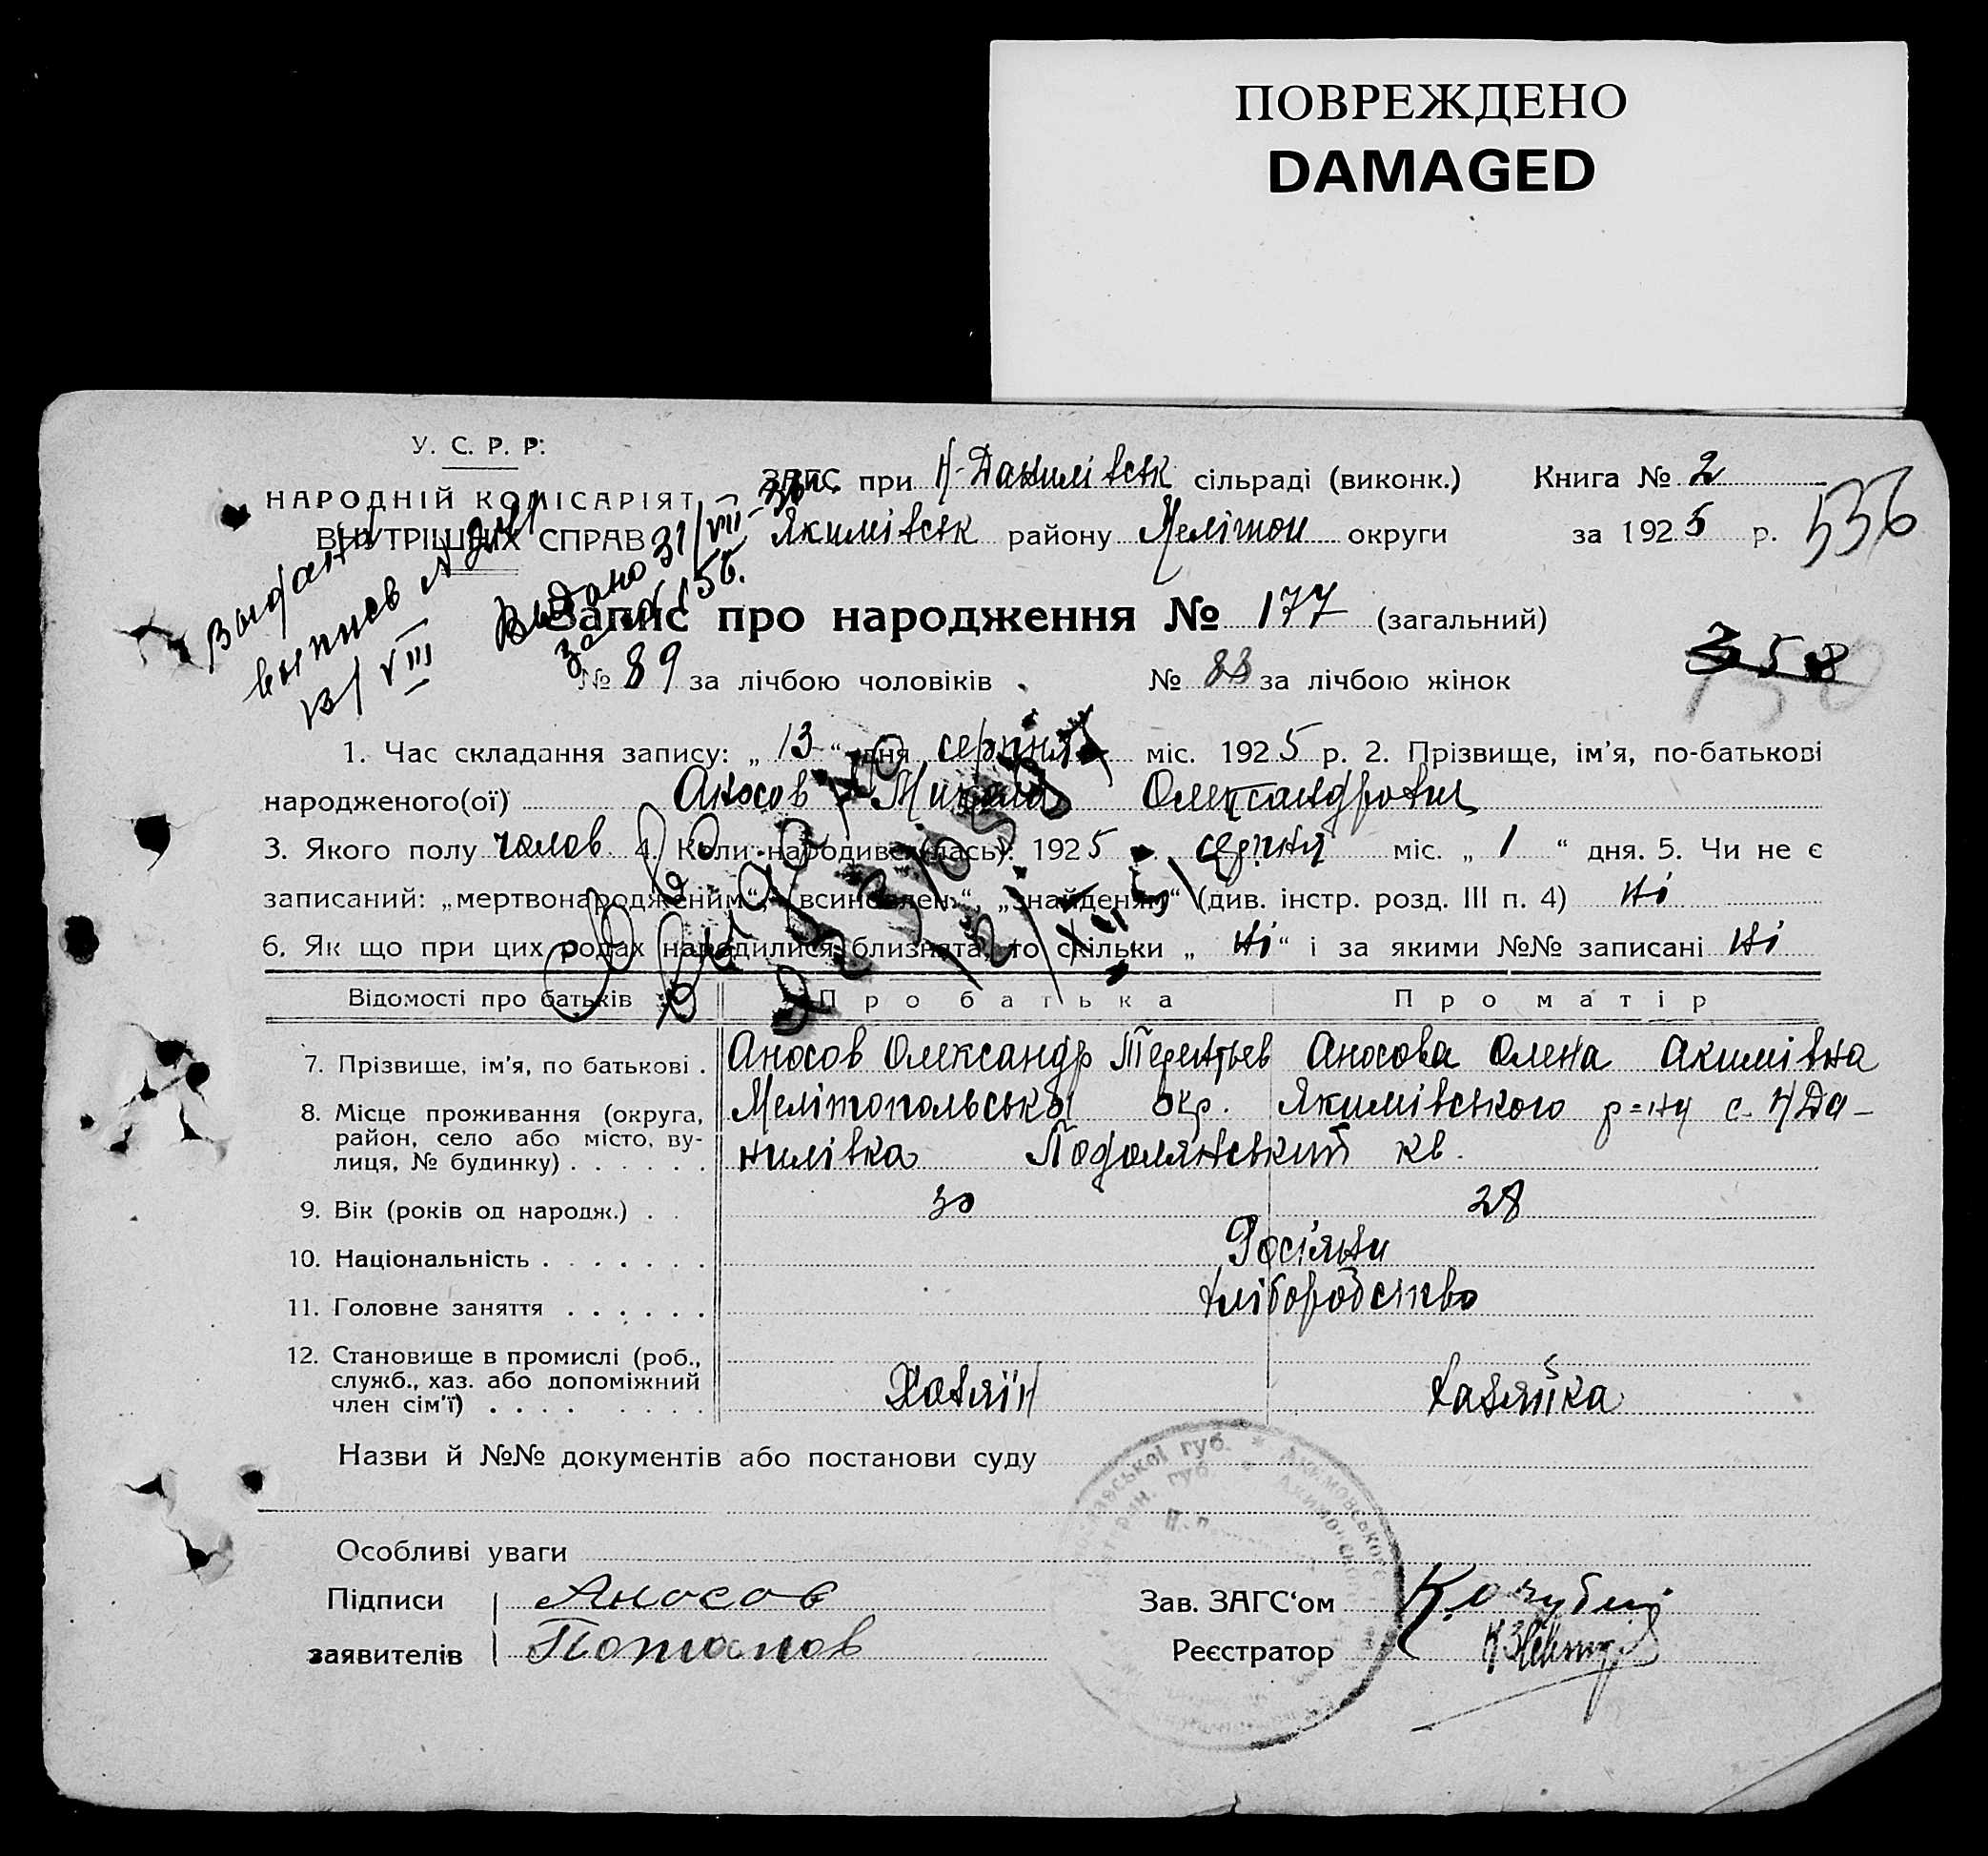 ПОВРЕЖДЕНО
DAMAGED
У. С. Р. Р.
НАРОДНІЙ КОМІСАРІЯТ
ВНУТРІШНІХ СПРАВ
ЗАГС при Н-Данилівськ сільраді (виконк.) Книга № 2
Якимівськ району Мелітоп округи за 1925 р.
536
Видано 31/VIII-
Запис про народження № 177 (загальний)
№ 89 за лічбою чоловіків № 88 за лічбою жінок
358
1. Час складання запису: „ 13 “ дня серпня міс. 1925 р. 2. Прізвище, ім’я, по-батькові
народженого(ої) Аносов Микола Олександрович
3. Якого полу чолов. 4. Коли народивсь(лась): 1925 серпня міс. „ 1 “ дня. 5. Чи не є
записаний: „мертвонародженим“, „всиновлен.“, „знайденим“ (див. інстр. розд. III п. 4) Ні
6. Як що при цих родах народилися близнята, то скільки „ Ні “ і за якими №№ записані Ні
Відомості про батьків Про батька Про матір
7. Прізвище, ім’я, по батькові . Аносов Олександр Терентьев Аносова Олена Акимівна
8. Місце проживання (округа, район, село або місто, вулиця, № будинку) . . . . . . Мелітопольської окр. Якимівського р=ну с. Н Да-
нилівка Подолянський кв.
9. Вік (років од народж.) . . 30 28
10. Національність . . . . . . . Росіяни
11. Головне заняття . . . . . . Хліборобство
12. Становище в промислі (роб.,
служб., хаз. або допоміжний
член сім’ї) . . . . . . . . Хазяїн Хазяйка
Назви й №№ документів або постанови суду
Особливі уваги
Підписи Аносов Зав. ЗАГС‘ом
заявителів Потапов Реєстратор